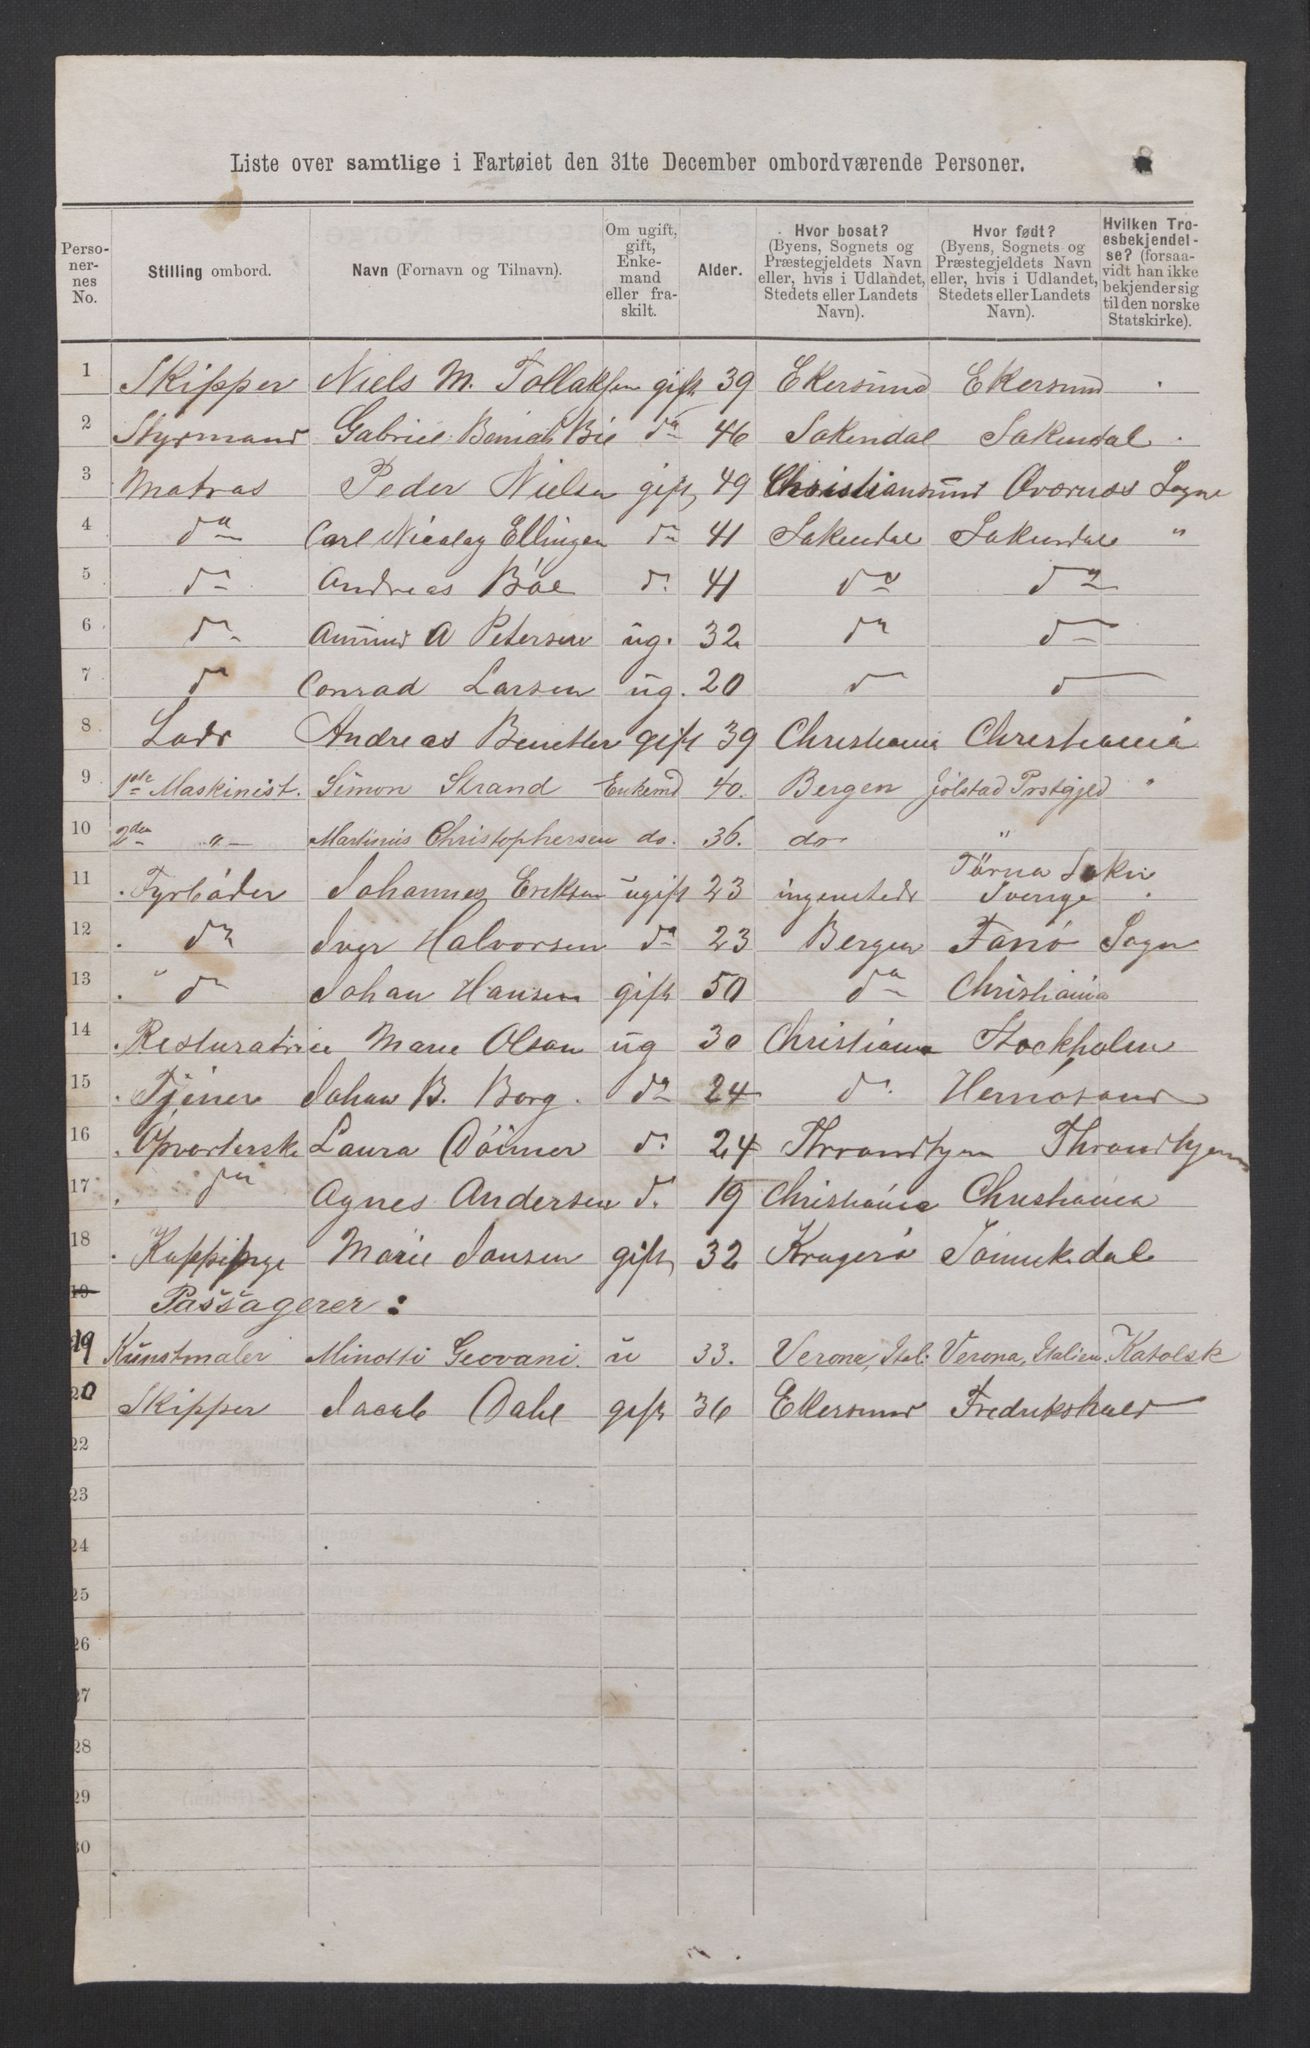 Liste over samtlige i Fartøiet den 31te December ombordværende Personer.
Perso-nernes No. Stilling ombord. Navn (Fornavn og Tilnavn). Om ugift, gift, Enkemand eller fraskilt. Alder. Hvor bosat? (Byens, Sognets og Præstegjeldets Navn eller, hvis i Udlandet, Stedets eller Landets Navn). Hvor født? (Byens, Sognets og Præstegjeldets Navn eller, hvis i Udlandet, Stedets eller Landets Navn). Hvilken Troesbekjendelse? (forsaavidt han ikke bekjender sig til den norske Statskirke).
1 Skipper Niels M. Tollaksen gift 39 Ekersund Ekersund
2 Styrmand Gabriel Bie do 46 Sokendal Sokendal
3 Matros Peder Nielsen gift 49 Christiansund Qvernes Sogn
4 do Carl Nicolay Ellingsen do 41 Sokendal Sokendal "
5 do Andreas Böe do 41 do do
6 do Aanund A Petersen ug. 32 do do
7 do Conrad Larsen ug. 20 do do
8 Lods Andreas gift 39 Christiania Christiania
9 1ste Maskinist. Simon Strand Enkemd 40. Bergen Jölstad Prstgjeld "
10 2den -"- Martinus Christophersen do. 36. do "
11 Fyrböder Johannes Eriksen ugift 23 ingensteds Tärna Sokn Sverige
12 do Iver Halvorsen do 23 Bergen Fanö Sogn
13 " do Johan Hansen gift 50 do Christiania
14 Resturatrice Marie Olsen ug 30 Christiania Stockholm
15 Tjener Johan B. Borg. do 24 do Hernösand
16 Opvarterske Laura do 24 Throndhjem Throndhjem
17 do Agnes Andersen do 19 Christiania Christiania
18 Kappipige Marie Jansen gift 32 Kragerö
19 Passagerer:
19 Kunstmaler Minotti Geovani. u 33. Verona, Ital: Verona, Italien. Katolsk
20 Skipper Jacob Dahl gift 36 Ekersund Fredrikshald
22
23
24
25
26
27
28
29
30